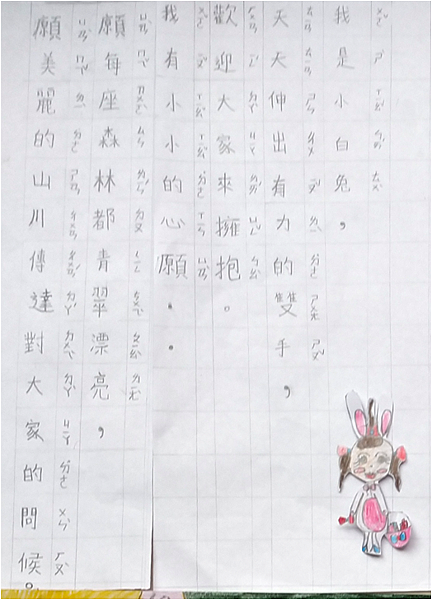 我是小白兔，
天天伸出有力的雙手，
歡迎大家來擁抱。
我有小小的心願：
願每座森林都青翠漂亮，
願美麗的山川傳達對大家的問候。